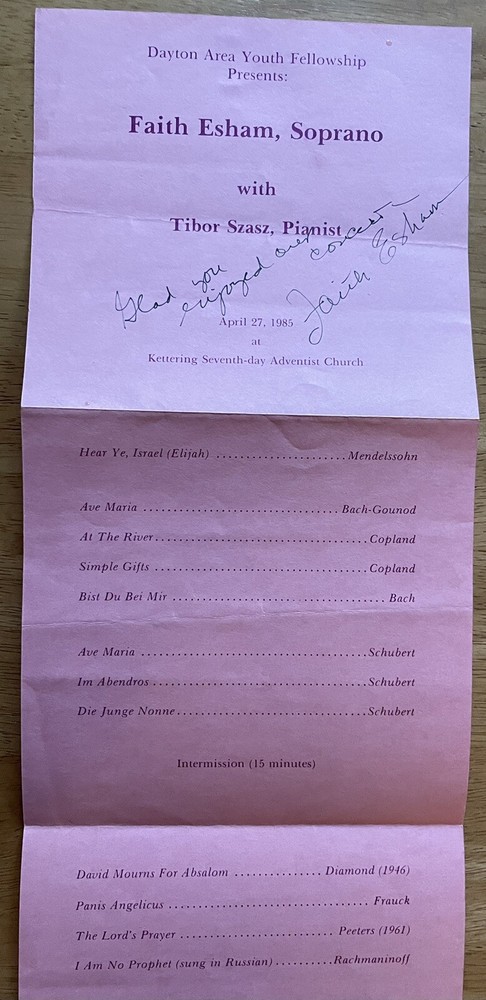 Dayton Area Youth Fellowship
Presents:
Faith Esham, Soprano
with
Tibor Szasz, Pianist
Glad you enjoyed our concert
Faith Esham
April 27, 1985
at
Kettering Seventh-day Adventist Church
Hear Ye, Israel (Elijah) ...................... Mendelssohn
Ave Maria ................................. Bach-Gounod
At The River ................................... Copland
Simple Gifts ................................... Copland
Bist Du Bei Mir ................................... Bach
Ave Maria ..................................... Schubert
Im Abendros ................................... Schubert
Die Junge Nonne ............................... Schubert
Intermission (15 minutes)
David Mourns For Absalom ............... Diamond (1946)
Panis Angelicus .................................. Frauck
The Lord's Prayer .......................... Peeters (1961)
I Am No Prophet (sung in Russian) .......... Rachmaninoff